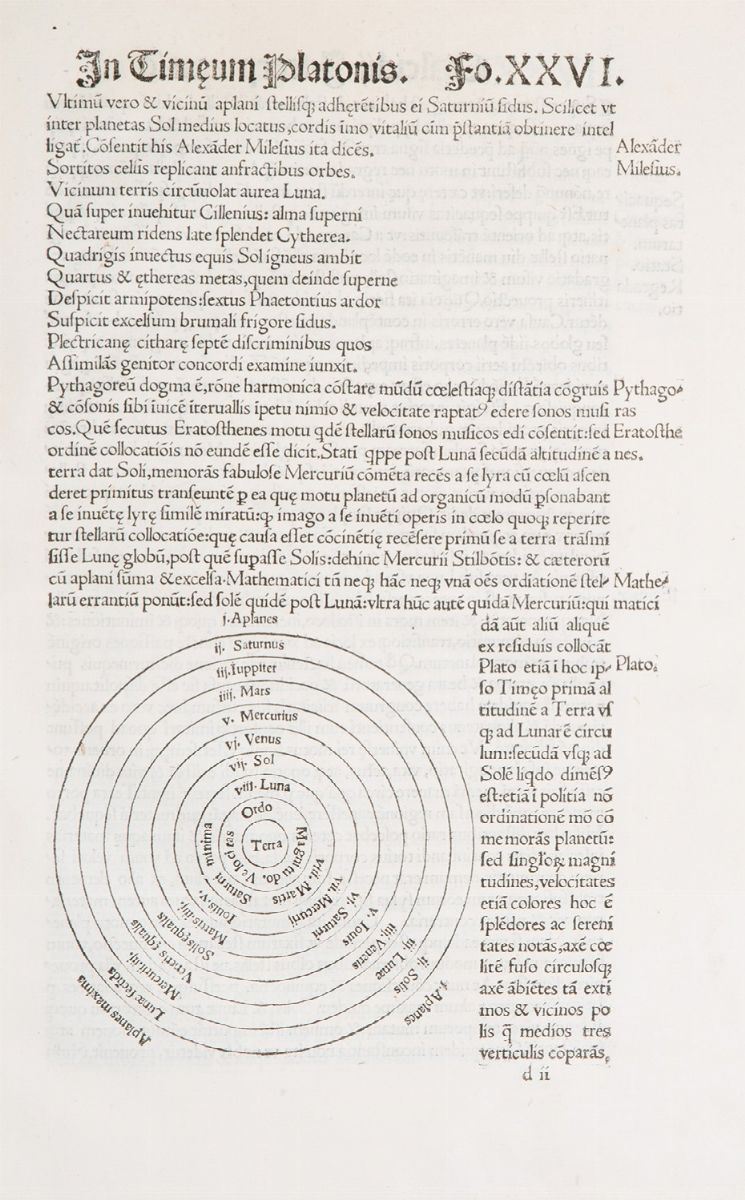 In Timęum Platonis. Fo.XXVI.
Vltimū vero & vicinū aplani stellisq; adhęrētibus ei Saturniū sidus. Scilicet vt
inter planetas Sol medius locatus,cordis īmo vitaliū cīm p̄stantiā obtinere intel
ligat̃. Cōsentit his Alexāder Milesius ita dicēs.
Alexāder
Sortitos celsis replicant anfractibus orbes.
Milesius.
Vicinum terris circūuolat aurea Luna.
Quā super inuehitur Cillenius: alma superni
Nectareum ridens late splendet Cytherea.
Quadrigis inuectus equis Sol igneus ambit
Quartus & ęthereas metas,quem deinde superne
Despicit armipotens:sextus Phaetontius ardor
Suspicit excelsum brumali frigore sidus.
Plectricanę citharę septē discriminibus quos
Assimilās genitor concordi examine iunxit.
Pythagoreū dogma ē,rōne harmonica cōstare mūdū cœlestiaq; distātia cōgruis
Pytha­go
& cōsonis sibi iuicē iteruallis ipetu nimio & velocitate raptatꝰ edere sonos musi
ras
cos.Quē secutus Eratosthenes motu qdē stellarū sonos musicos edi cōsentit:sed
Eratosthe
ordinē collocatiōis nō eundē esse dicit.Stati qppe post Lunā secūdā altitudinē a
nes.
terra dat Soli,memorās fabulose Mercuriū cōmēta recēs a se lyra cū cœlū ascen
deret primitus transeuntē ꝑ ea quę motu planetū ad organicū modū ꝑsonabant
a se inuētę lyrę similē miratū:ꝙ imago a se inuēti operis in cœlo quoq; reperire
tur stellarū collocatiōe:quę causa esset cōcinētię recēsere primū se a terra trāsmi
sisse Lunę globū,post quē supasse Solis:dehinc Mercurii Stilbōtis: & cæterorū
cū aplani sūma & excelsa.Mathematici tū neq; hāc neq; vnā oēs ordiationē stel
Mathe
larū errantiū ponūt:sed solē quidē post Lunā:vltra hūc autē quidā Mercuriū:qui
matici
dā aūt aliū aliquē
ex residuis collocāt
Plato etiā i hoc ip
Plato.
so Timęo primā al
titudinē a Terra vs
q; ad Lunarē circu
lum:secūdā vsq; ad
Solē liqdo dimēsꝰ
est:etiā i politia nō
ordinationē mō cō
memorās planetū:
sed singloꝝ magni
tudines,velocitates
etiā colores hoc ē
splēdores ac sereni
tates notās,axē cœ
litē fuso circulosq;
axē ābiētes tā exti
mos & vicinos po
lis q̄ medios tres
verticulis cōparās,
d ii
j.Aplanes
ij. Saturnus
iij.Iuppiter
iiij. Mars
v. Mercurius
vj. Venus
vij. Sol
viij. Luna
Ordo
Terra
Magnitudo.
Velocitas
viij. Martis
vij. Mercurij
vj. Saturni
v. Iouis
iiij. Veneris
iij. Lunæ
ij. Solis
j. Aplanes
Saturni minima
Iouis.v.
Martis.iiij.
Solis equalis
Veneris equalis
Mercurij.iij.
Lunæ secūda
Aplanes maxima